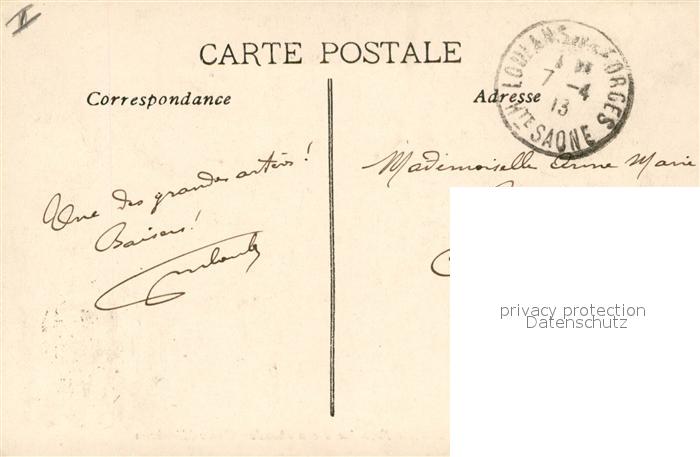 CARTE POSTALE
Correspondance
Adresse
LOULANS LES FORGES
7 -4
13
HTE SAONE
Une des grandes artères!
Baisers!
Mademoiselle Anne Marie
privacy protection
Datenschutz